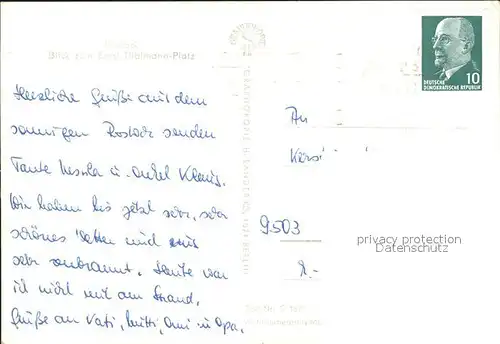 Rostock
Blick zum Ernst-Thälmann-Platz
10
DEUTSCHE
DEMOKRATISCHE REPUBLIK
Herzliche Grüße aus dem
sonnigen Rostock senden
Tante Ursula u. Onkel Klaus.
Wir haben bis jetzt sehr, sehr
schönes Wetter und sind
sehr verbrannt. Heute war
ich nicht mit am Strand.
Grüße an Vati, Mutti, Omi u. Opa.
An
9503
privacy protection
Datenschutz